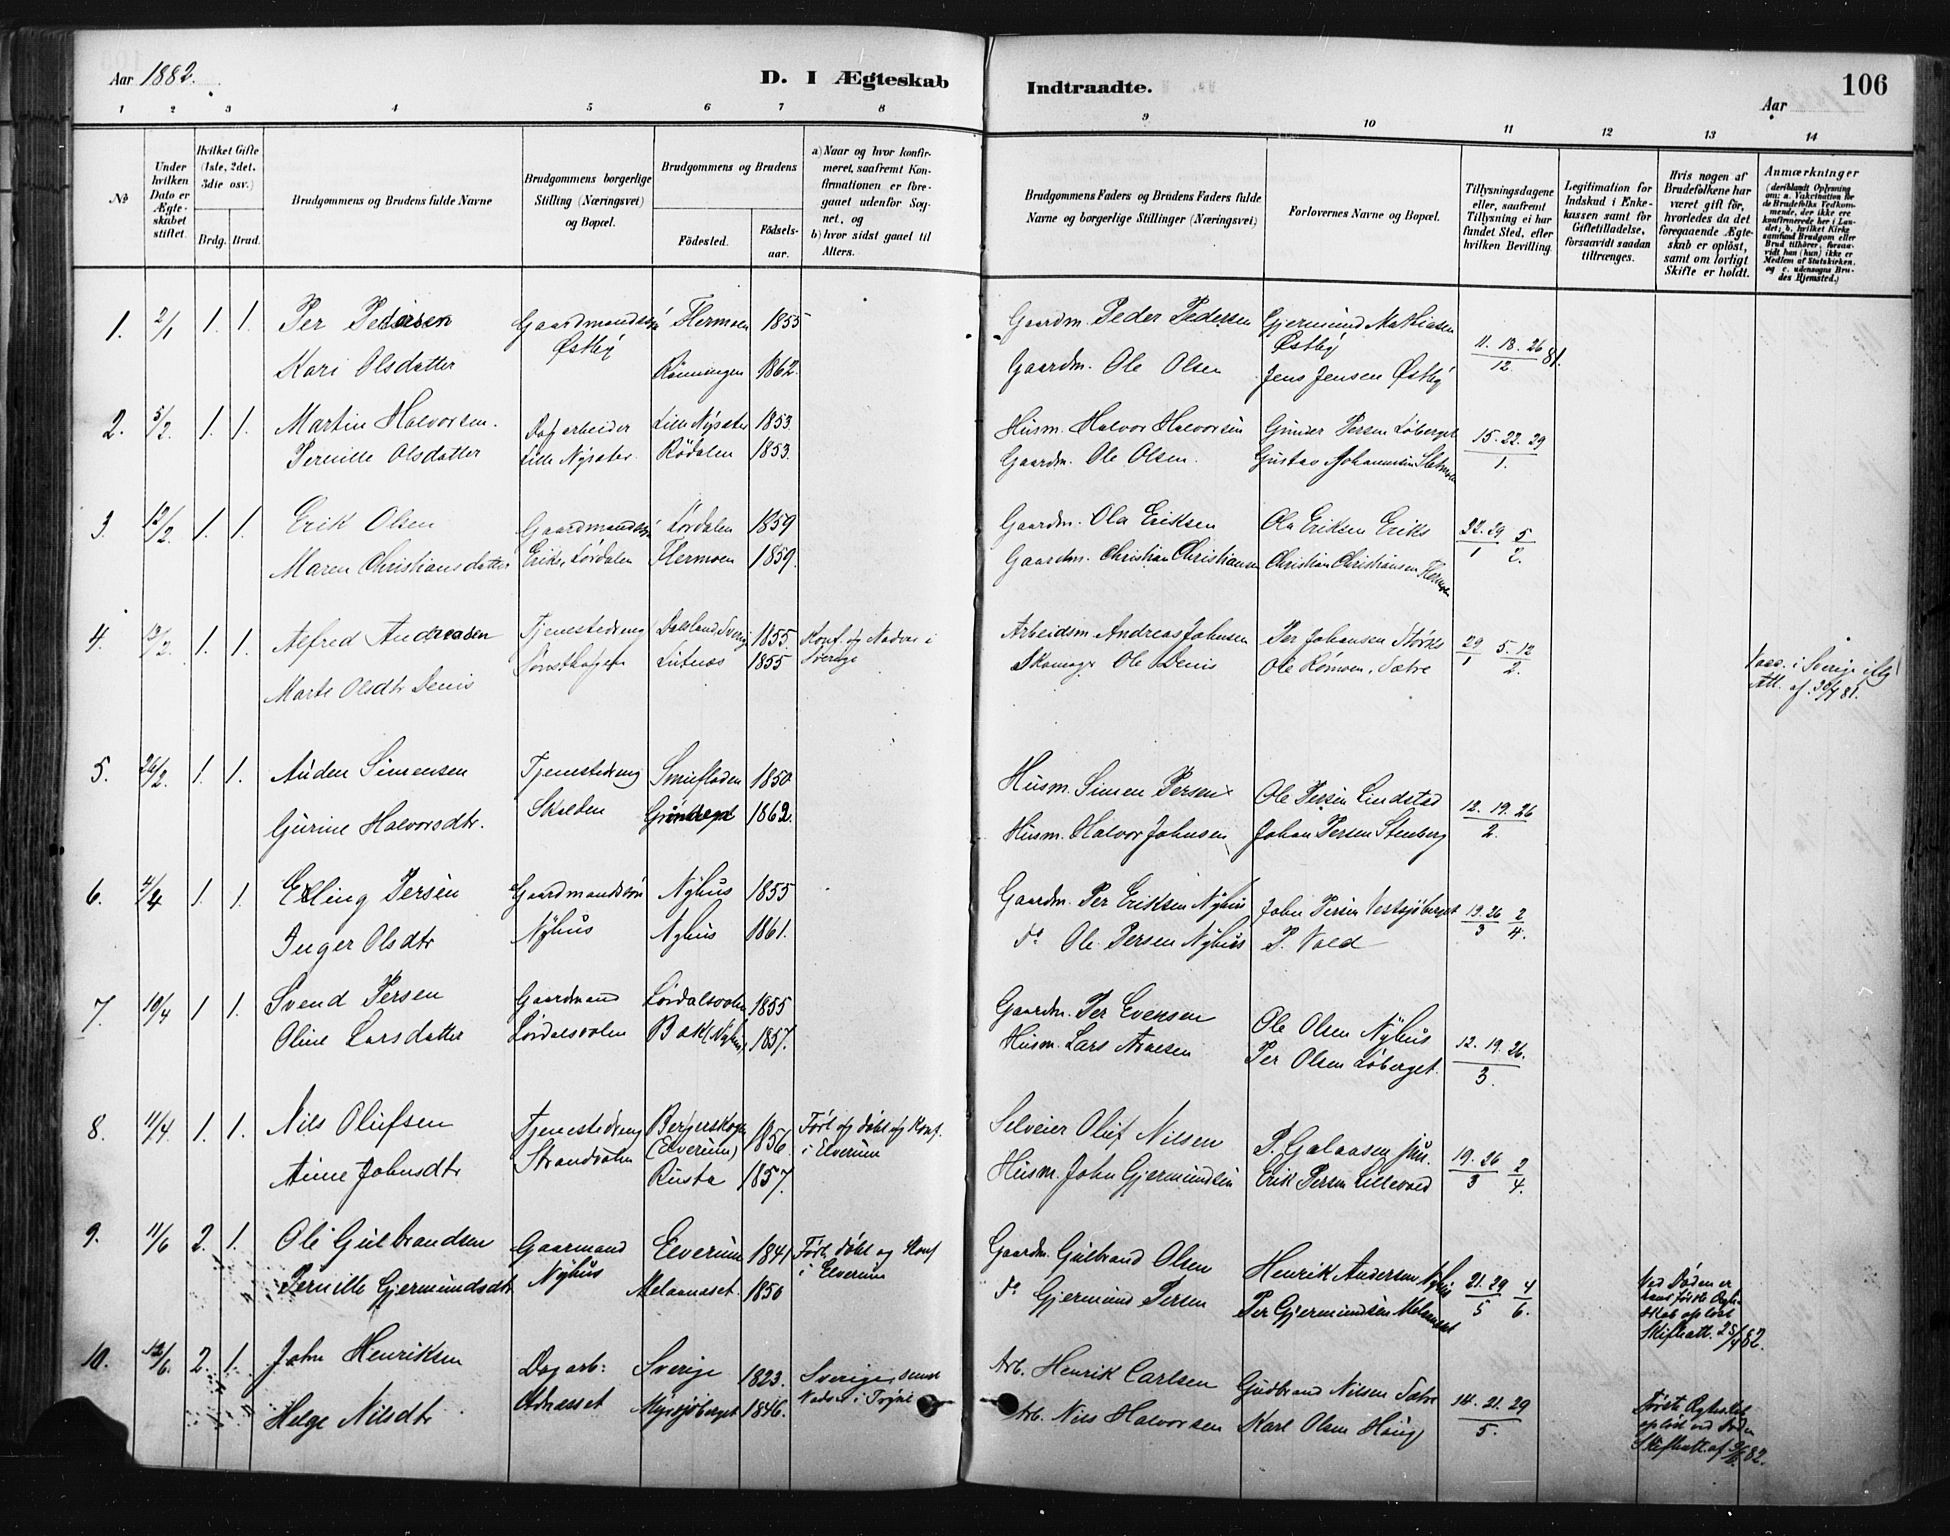 Aar 1882.
D. I Ægteskab
Indtraadte.
106
Aar
1 2 3 4 5 6 7 8
9 10 11 12 13 14
No
Under hvilken Dato er Ægteskabet stiftet.
Hvilket Gifte (1ste, 2det, 3die osv.)
Brdg. Brud.
Brudgommens og Brudens fulde Navne
Brudgommens borgerlige Stilling (Næringsvei) og Bopæl.
Brudgommens og Brudens
Fødested.
Fødselsaar.
a) Naar og hvor konfirmeret, saafremt Konfirmationen er foregaaet udenfor Sognet, og
b) hvor sidst gaaet til Alters.
Brudgommens Faders og Brudens Faders fulde Navne og borgerlige Stillinger (Næringsvei)
Forlovernes Navne og Bopæl.
Tillysningsdagene eller, saafremt Tillysning ei har fundet Sted, efter hvilken Bevilling.
Legitimation for Indskud i Enkekassen samt for Giftetilladelse, forsaavidt saadan tiltrænges.
Hvis nogen af Brudefolkene har været gift før, hvorledes da det foregaaende Ægteskab er opløst, samt om lovligt Skifte er holdt.
Anmærkninger
(deriblandt Oplysning om: a. Vakcination for de Brudefolks Vedkommende, der ikke ere konfirmerede her i Landet; b. hvilket Kirkesamfund Brudgom eller Brud tilhører, forsaavidt han (hun) ikke er Medlem af Statskirken, og c. udensogns Brudes Hjemsted.)
1. 2/1 1. 1. Per Pedersen Gaardmandssøn Flermoen 1855 Gaardm. Peder Pedersen Gjermund Mathiasen
Østby Østby 11. 18. 26/12. 81.
Kari Olsdatter Rønningen 1862. Gaardm. Ole Olsen Jens Jensen Østby
2. 5/2. 1. 1. Martin Halvorsen. Dagarbeider Lille Nysæter 1853. Husm. Halvor Halvorsen Gunder Persen Løberget 15. 22. 29/1.
Pernille Olsdatter Lille Nysæter. Rødalen 1853. Gaardm. Ole Olsen. Gustav Johannesen
3 12/2. 1. 1. Erik Olsen Gaardmandssøn Lørdalen 1859 Gaardm. Ola Eriksen Ola Eriksen Eriks 22. 29/1 5/2.
Maren Christiansdatter Eriks, Lørdalen Flermoen 1859. Gaardm. Christian Christiansen Christian Christiansen Flermoen
4. 12/2. 1. 1. Alfred Andreasen Tjenestedreng Dalsland Sverig 1855. Konf. og Nadver i Arbeidsm. Andreas Johnsen Per Johansen 29/1 5. 12/2.
Lutnæs 1855 Sverige Skomager Ole Denis Ole Kømoen, Sætre
Marte Olsdtr Denis
Vacc. i Sverige ifølg
Att. af 30/4 81.
5. 26/2. 1. 1. Auden Simensen Tjenestedreng 1850 Husm. Simen Persen Ole Persen Lindstad 12. 19. 26/2.
Skalden
Gurine Halvorsdtr. 1862. Husm. Halvor Johnsen Johan Persen Stenberg
6. 4/4 1. 1. Elling Persen Gaardmandssøn Nyhus 1855 Gaardm. Per Eriksen Nyhus John Persen Vestsjøberget 19. 26/3 2/4.
Inger Olsdtr Nyhus Nyhus 1861. Do Ole Persen Nyhus P. Vold
7. 10/4 1 1. Svend Persen Gaardmand Lørdalsvolen 1855 Gaardm. Per Evensen Ole Olsen Nyhus 12. 19. 26./3.
Oline Larsdatter Lørdalsvolen Bak (Nyhus) 1857. Husm. Lars Arnesen Per Olsen Løberget.
8. 11/4. 1. 1. Nils Olufsen Tjenestedreng Bergerskogen 1856. Født og døbt og Konf. Selveier Oluf Nilsen P. Galaasen jun. 19. 26/3 2/4.
Strandvolen (Elverum) i Elverum
Anne Johnsdtr Rusta 1857. Husm. John Gjermundsen Erik Persen Lillevold
9. 11/6 2. 1. Ole Gulbrandsen Gaarmand Elverum 1841 Født, døbt og Konf Gaardm. Gulbrand Olsen Henrik Andersen Nyhus 21. 29/5 4/6.
Nyhus i Elverum
Pernille Gjermundsdtr Melaanæset 1850 Do Gjermund Persen Per Gjermundsen Melaaneset
Ved Døden er
hans første Ægteskab
opløst
Skifteatt. 25/4 82.
10. 12/6. 2. 1. John Henriksen Dagarb: Sverige 1823. Sverige, senest Arb. Henrik Carlsen Gudbrand Nilsen Sætre 14. 21. 29/5.
Nadver i Trysil
Helge Nilsdtr Mysjøberget 1846. Arb. Nils Halvorsen Karl Olsen Haug
Første Ægteskab
opløst ved Døden
Skifteatt. af 82.